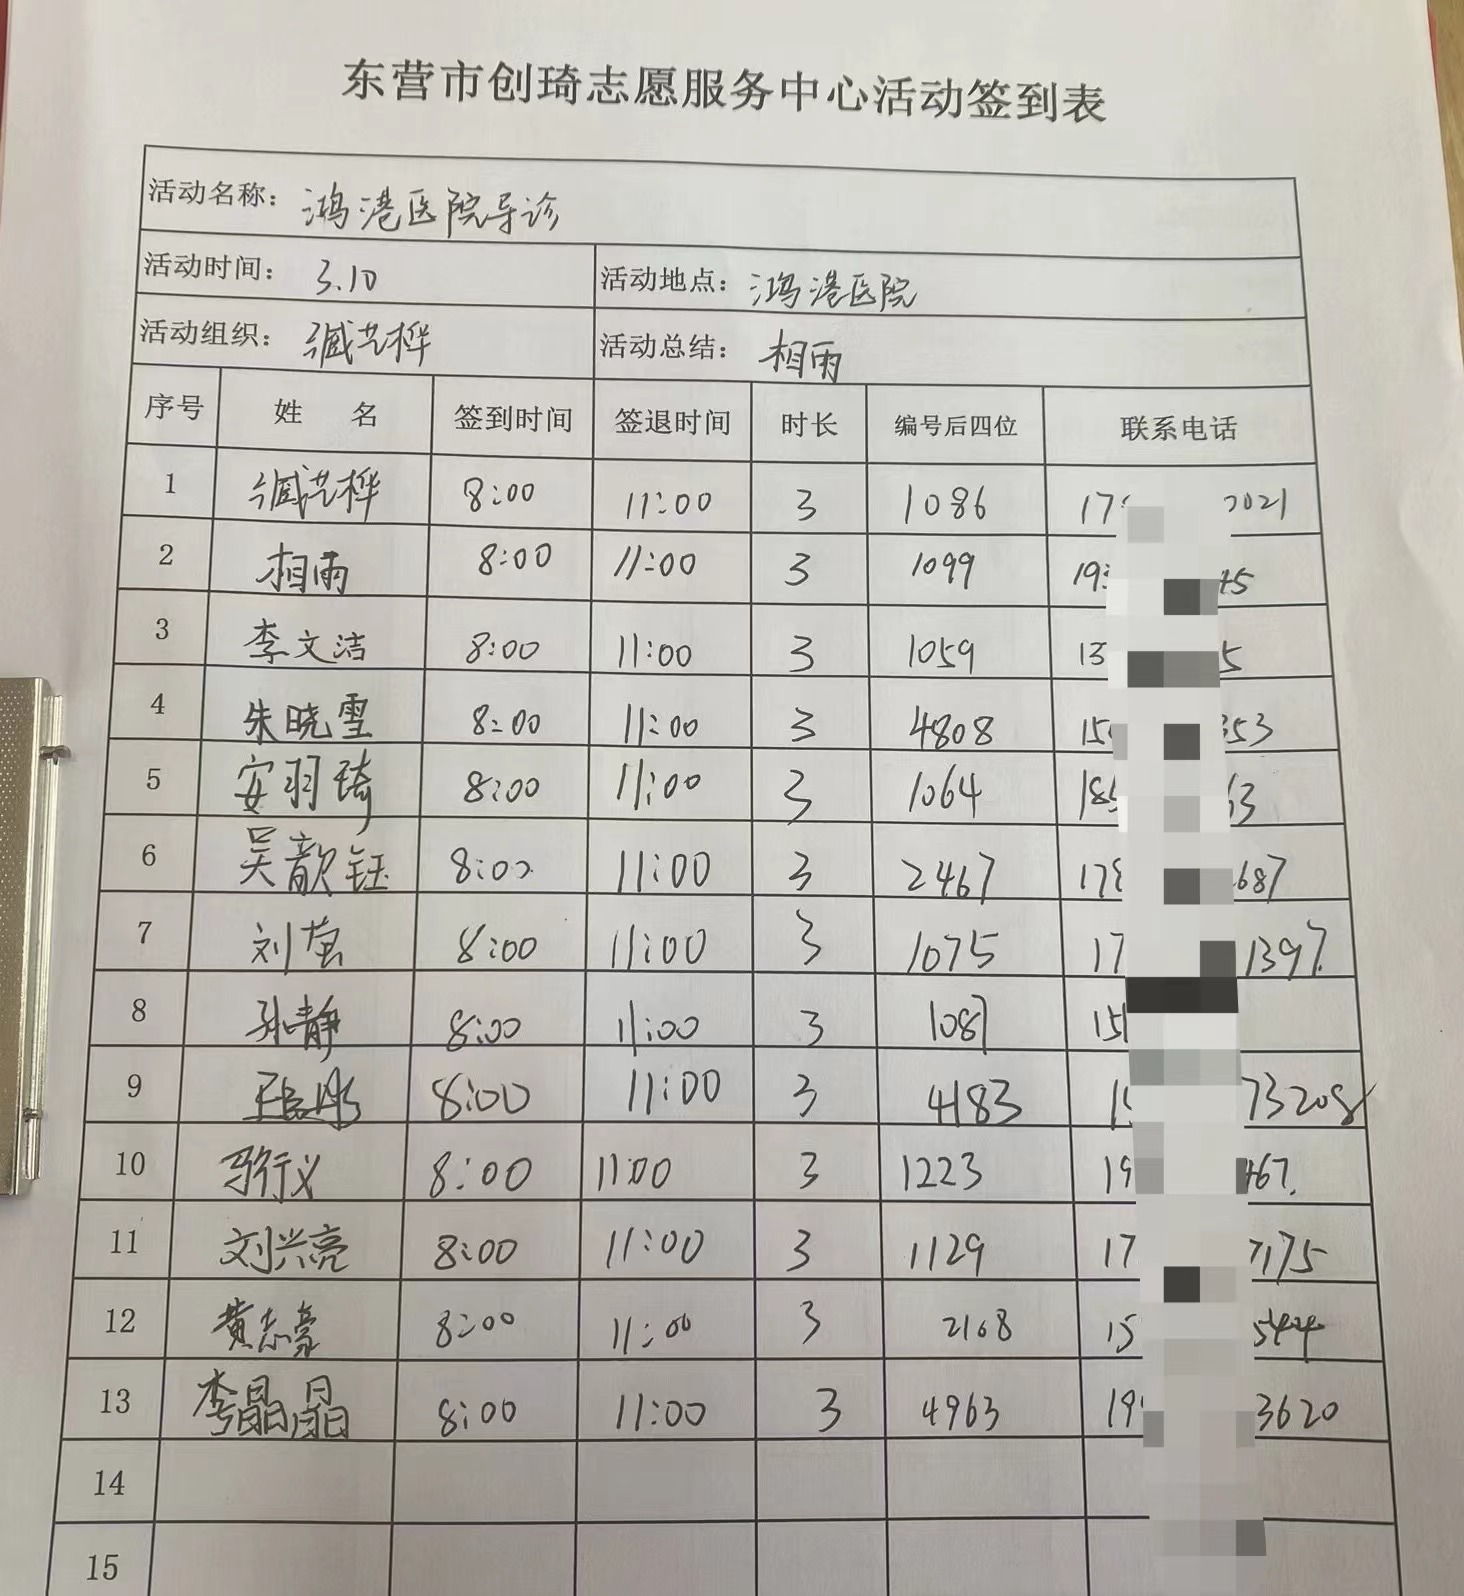 东营市创琦志愿服务中心活动签到表
活动名称: 鸿港医院导诊
活动时间: 3.10 活动地点: 鸿港医院
活动组织: 臧艺桦 活动总结: 相雨
序号 姓 名 签到时间 签退时间 时长 编号后四位 联系电话
1 臧艺桦 8:00 11:00 3 1086 17 2021
2 相雨 8:00 11:00 3 1099 193 45
3 李文洁 8:00 11:00 3 1059 13 5
4 朱晓雪 8:00 11:00 3 4808 15 353
5 安羽琦 8:00 11:00 3 1064 185 63
6 吴歆钰 8:00 11:00 3 2467 178 687
7 刘萤 8:00 11:00 3 1075 17 1397.
8 孙静 8:00 11:00 3 1087 15
9 8:00 11:00 3 4183 1 73208
10 马行义 8:00 11:00 3 1223 19 467.
11 刘兴亮 8:00 11:00 3 1129 17 7175
12 黄志豪 8:00 11:00 3 2168 15 544
13 李晶晶 8:00 11:00 3 4963 19 3620
14
15